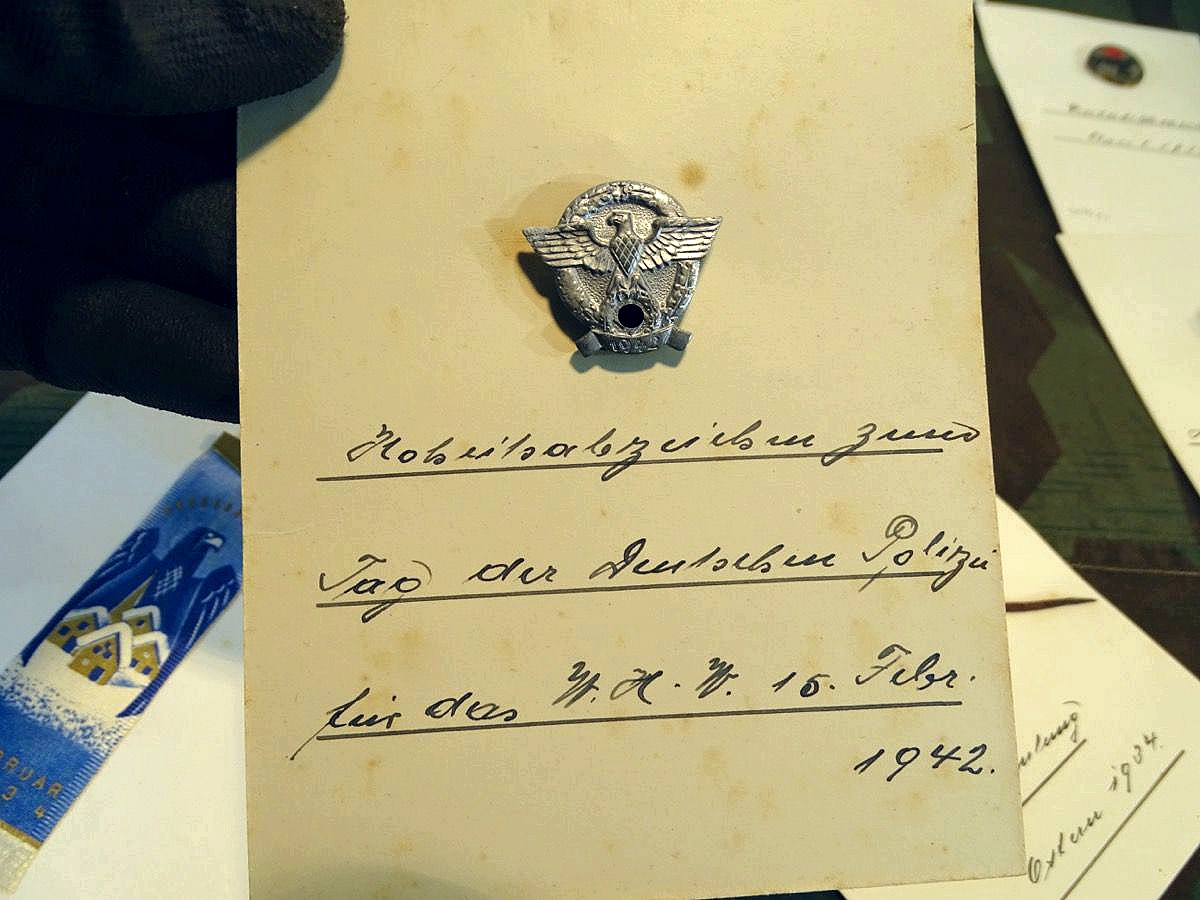 1942
Hoheitsabzeichen zum
Tag der Deutschen Polizei
für das W. H. W. 15. Febr.
1942.
BRUAR
34
Ostern 1934.